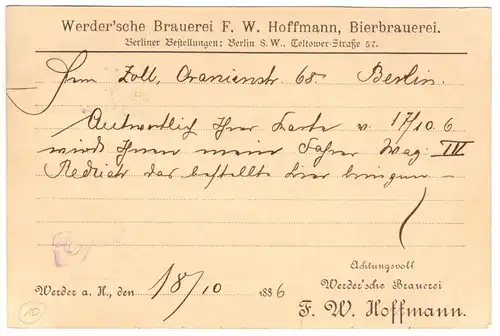 Werder'sche Brauerei F. W. Hoffmann, Bierbrauerei.
Berliner Bestellungen: Berlin S.W., Teltower-Straße 57.
Herrn Zoll, Oranienstr. 68 Berlin.
Antwortlich Ihrer Karte v. 17/10 6
wird Ihnen mein Fahrer Wag. IV
das bestellte Bier bringen
Achtungsvoll
Werder a. H., den 18/10 1886
Werder'sche Brauerei
F. W. Hoffmann.
10